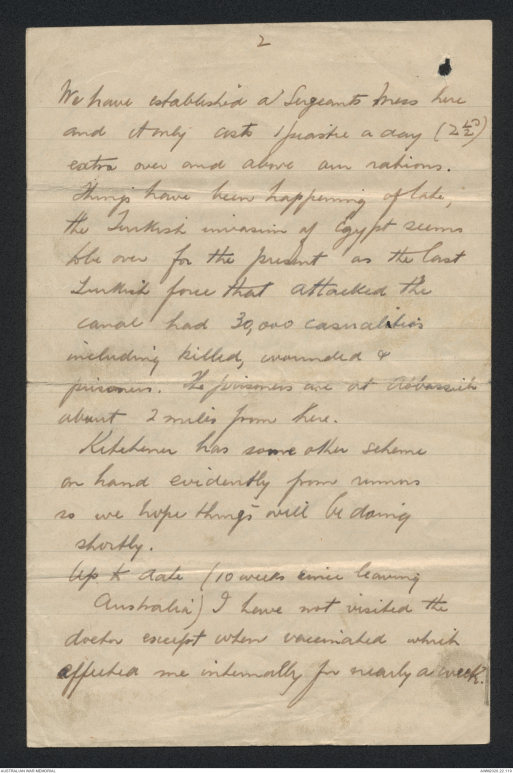 2
We have established a Sergeants Mess here
and it only costs 1 piastre a day (2½D)
extra over and above our rations.
Things have been happening of late,
the Turkish invasion of Egypt seems
to be over for the present as the last
Turkish force that attacked the
canal had 30,000 casualities
including killed, wounded &
prisoners. The prisoners are at Abbassieh
about 2 miles from here.
Kitchener has some other scheme
on hand evidently from rumors
so we hope things will be doing
shortly.
Up to date (10 weeks since leaving
Australia) I have not visited the
doctor except when vaccinated which
affected me internally for nearly a week.
AUSTRALIAN WAR MEMORIAL